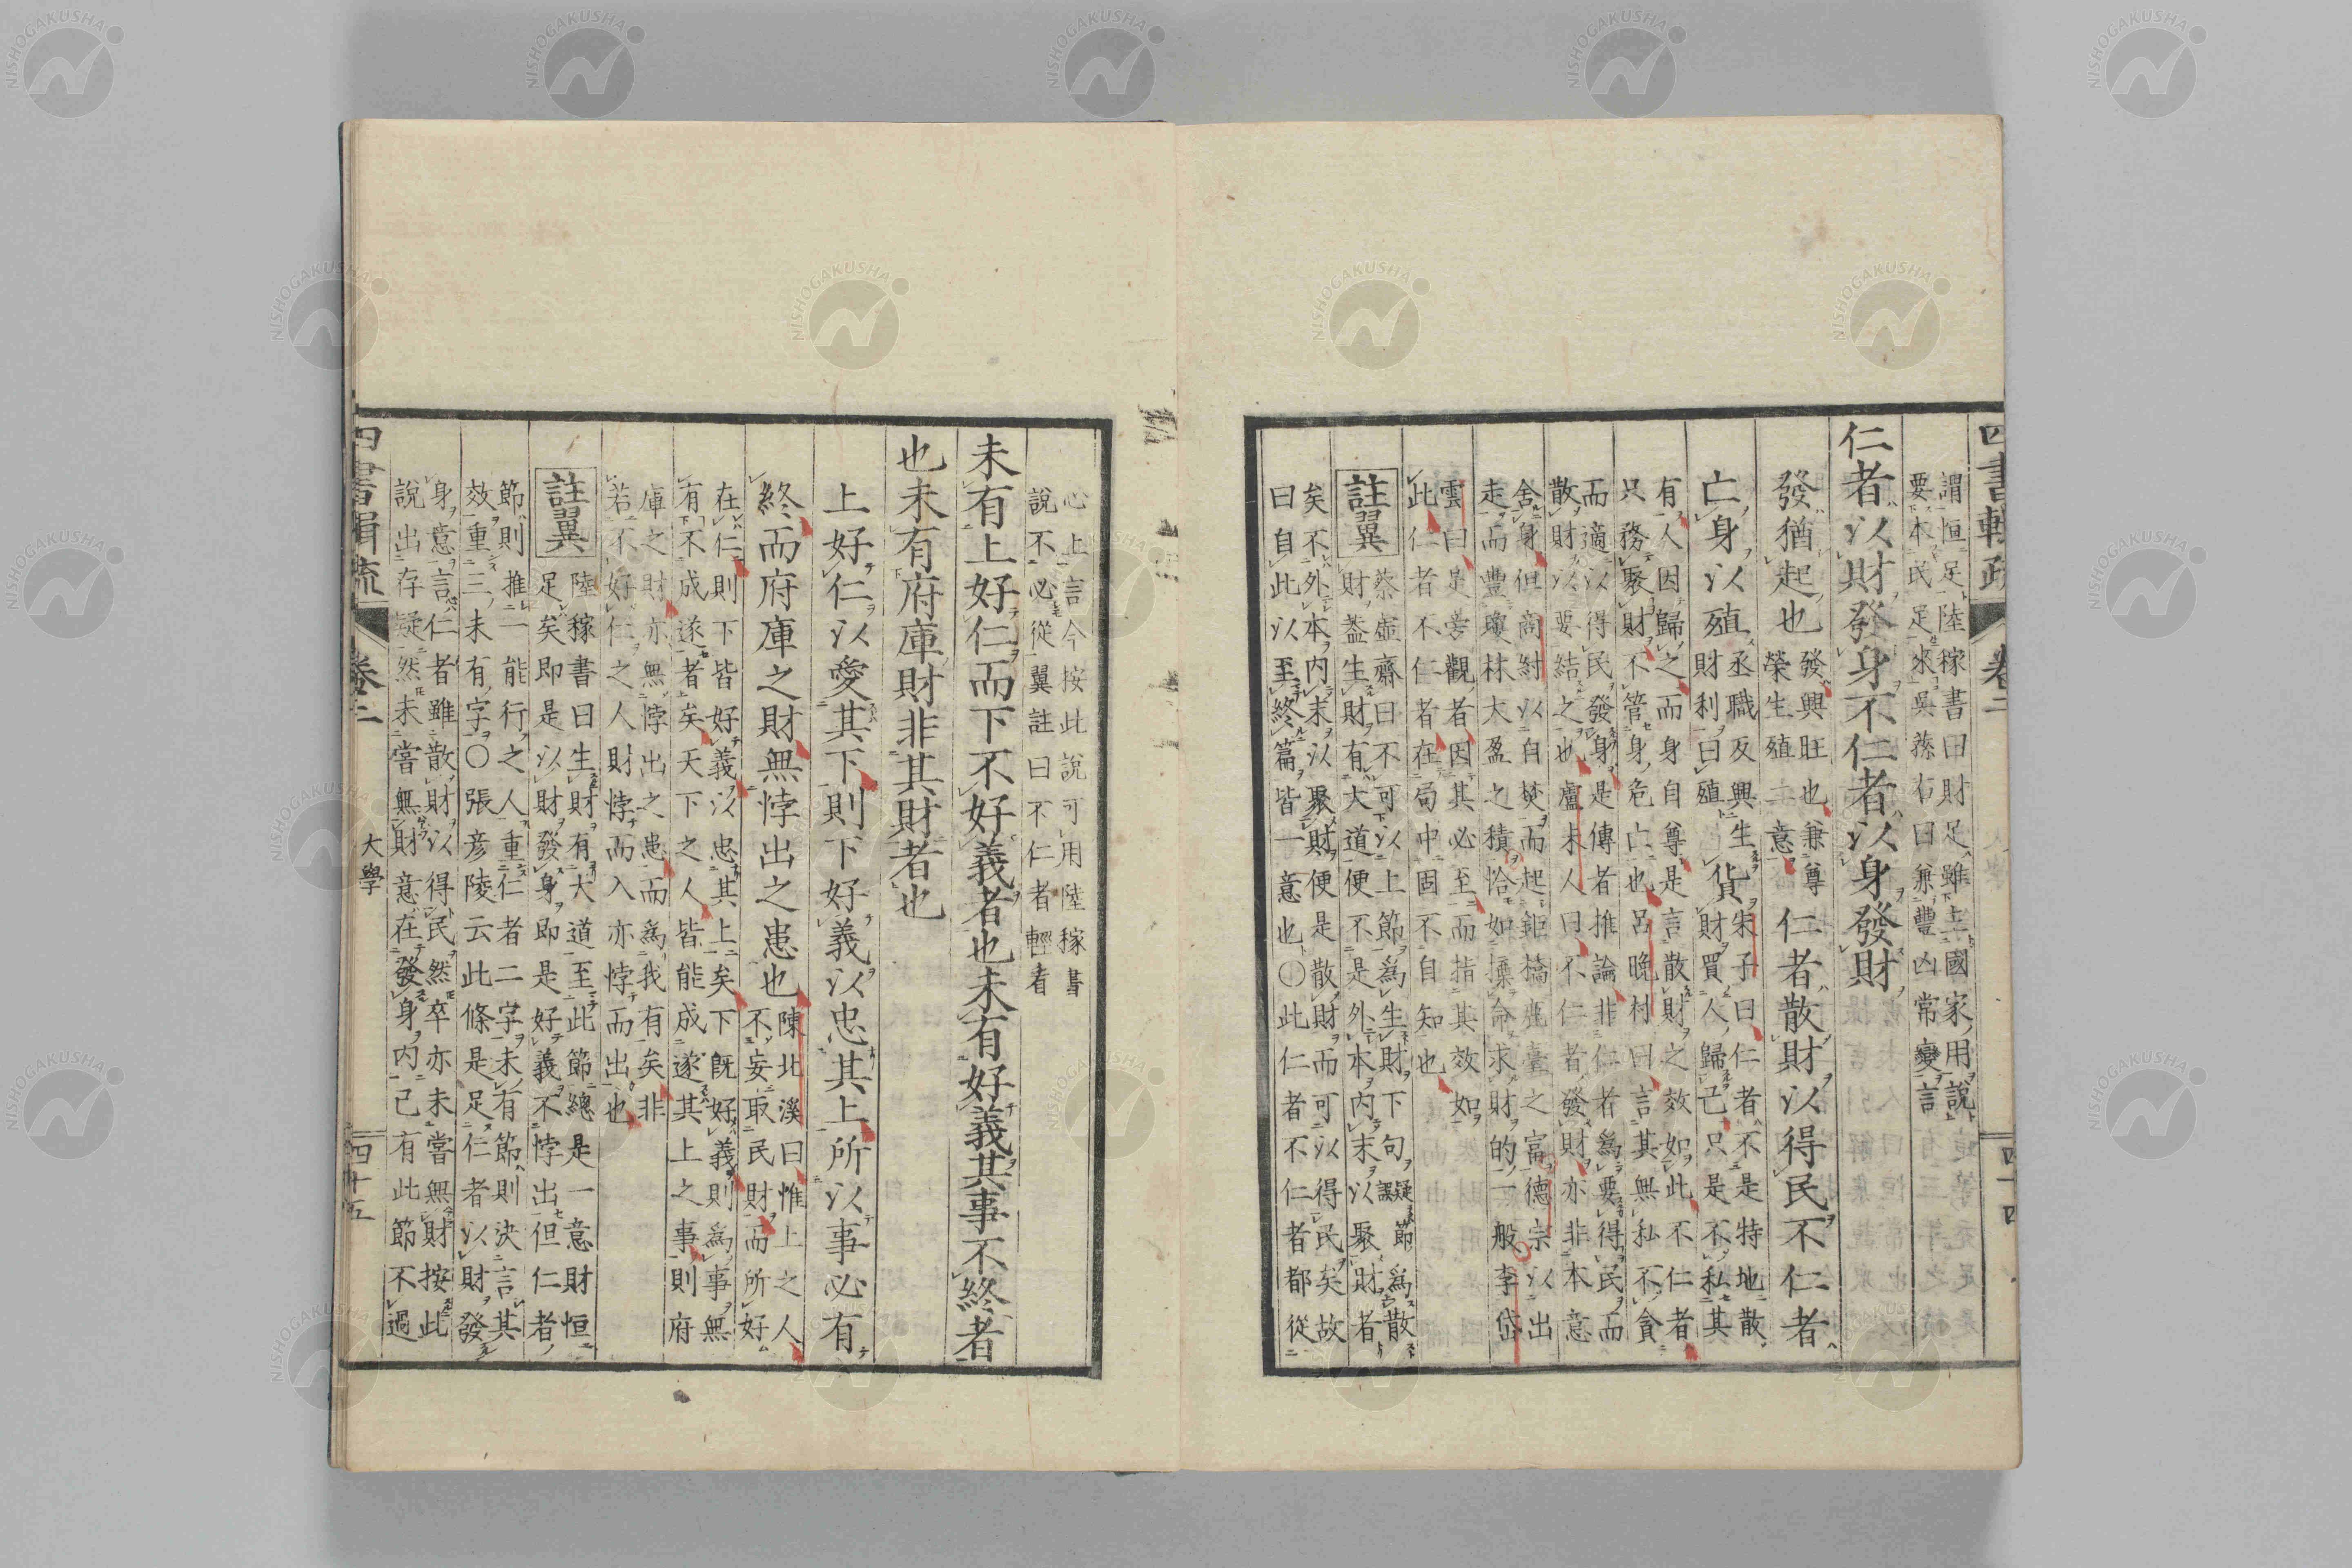 四書輯疏
卷二
四十四
謂恒足陸稼書曰財足雖主國家用說
要本民足來吳蓀右曰兼豐凶常變言
仁者以財發身不仁者以身發財
發猶起也
發興旺也兼尊
榮生殖二意
仁者散財以得民不仁者
亡身以殖
丞職反興生
財利曰殖
貨
朱子曰仁者不是特地散
財買人歸己只是不私其
有人因歸之而身自尊是言散財之效如此不仁者
只務聚財不管身危亡也呂晚村曰言其無私不貪
而適以得民發身是傳者推論非仁者為要得民而
散財以要結之也盧未人曰不仁者發財亦非本意
舍身但商紂以自焚而起鉅橋鹿臺之富德宗以出
走而豐瓊林大盈之積恰如操命求財的一般李岱
雲曰是旁觀者因其必至而指其效如
此仁者不仁者在局中固不自知也
註翼
蔡虛齋曰不可以上節為生財下句疑誤節為散
財蓋生財有大道便不是外本內末以聚財者
矣不外本內末以聚財便是散財而可以得民矣故
曰自此以至終篇皆一意也〇此仁者不仁者都從
心上言今按此說可用陸稼書
說不必從翼註曰不仁者輕看
未有上好仁而下不好義者也未有好義其事不終者
也未有府庫財非其財者也
上好仁以愛其下則下好義以忠其上所以事必有
終而府庫之財無悖出之患也
陳北溪曰惟上之人
不妄取民財而所好
在仁則下皆好義以忠其上矣下既好義則為事無
有不成遂者矣天下之人皆能成遂其上之事則府
庫之財亦無悖出之患而為我有矣非
若不好仁之人財悖而入亦悖而出也
註翼
陸稼書曰生財有大道至此節總是一意財恒
足矣即是以財發身即是好義不悖出但仁者
節則推一能行之人重仁者二字未有節則決言其
效重三未有字〇張彥陵云此條是足仁者以財發
身意言仁者雖散財以得民然卒亦未嘗無財按此
說出存疑然未嘗無財意在發身內已有此節不過
四書輯疏
卷二
大學
四十五